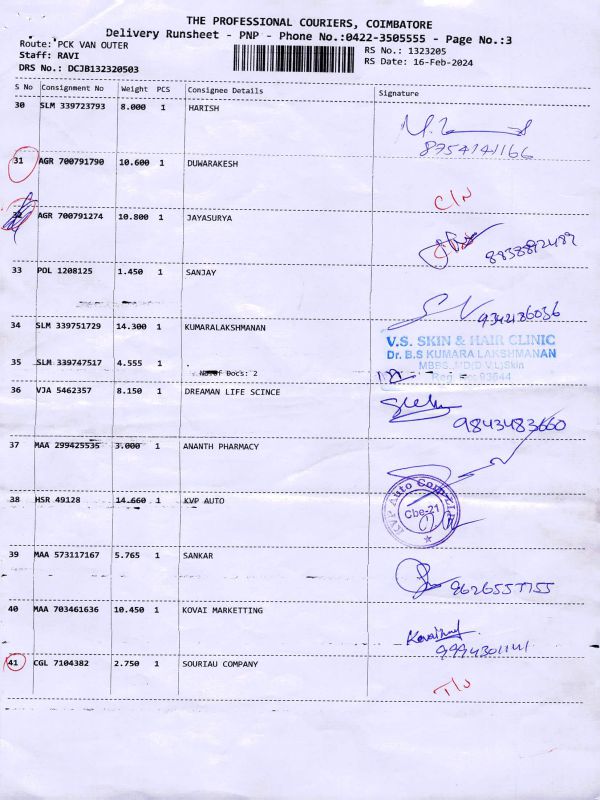 THE PROFESSIONAL COURIERS, COIMBATORE
Delivery Runsheet - PNP - Phone No.:0422-3505555 - Page No.:3
Route: PCK VAN OUTER RS No.: 1323205
Staff: RAVI RS Date: 16-Feb-2024
DRS No.: DCJB132320503
S No Consignment No Weight PCS Consignee Details Signature
30 SLM 339723793 8.000 1 HARISH
8754741166
31 AGR 700791790 10.600 1 DUWARAKESH
C/N
32 AGR 700791274 10.800 1 JAYASURYA
33 POL 1208125 1.450 1 SANJAY
9342136036
34 SLM 339751729 14.300 1 KUMARALAKSHMANAN
V.S. SKIN & HAIR CLINIC
Dr. B.S KUMARA LAKSHMANAN
MBBS.,MD(D.V.L)Skin
Reg No: 93644
35 SLM 339747517 4.555 1
No of Docs: 2
36 VJA 5462357 8.150 1 DREAMAN LIFE SCINCE
9843483660
37 MAA 299425535 3.000 1 ANANTH PHARMACY
38 HSR 49128 14.660 1 KVP AUTO
KVP Auto
Cbe-21
39 MAA 573117167 5.765 1 SANKAR
9626557755
40 MAA 703461636 10.450 1 KOVAI MARKETTING
9994301141
41 CGL 7104382 2.750 1 SOURIAU COMPANY
T/N